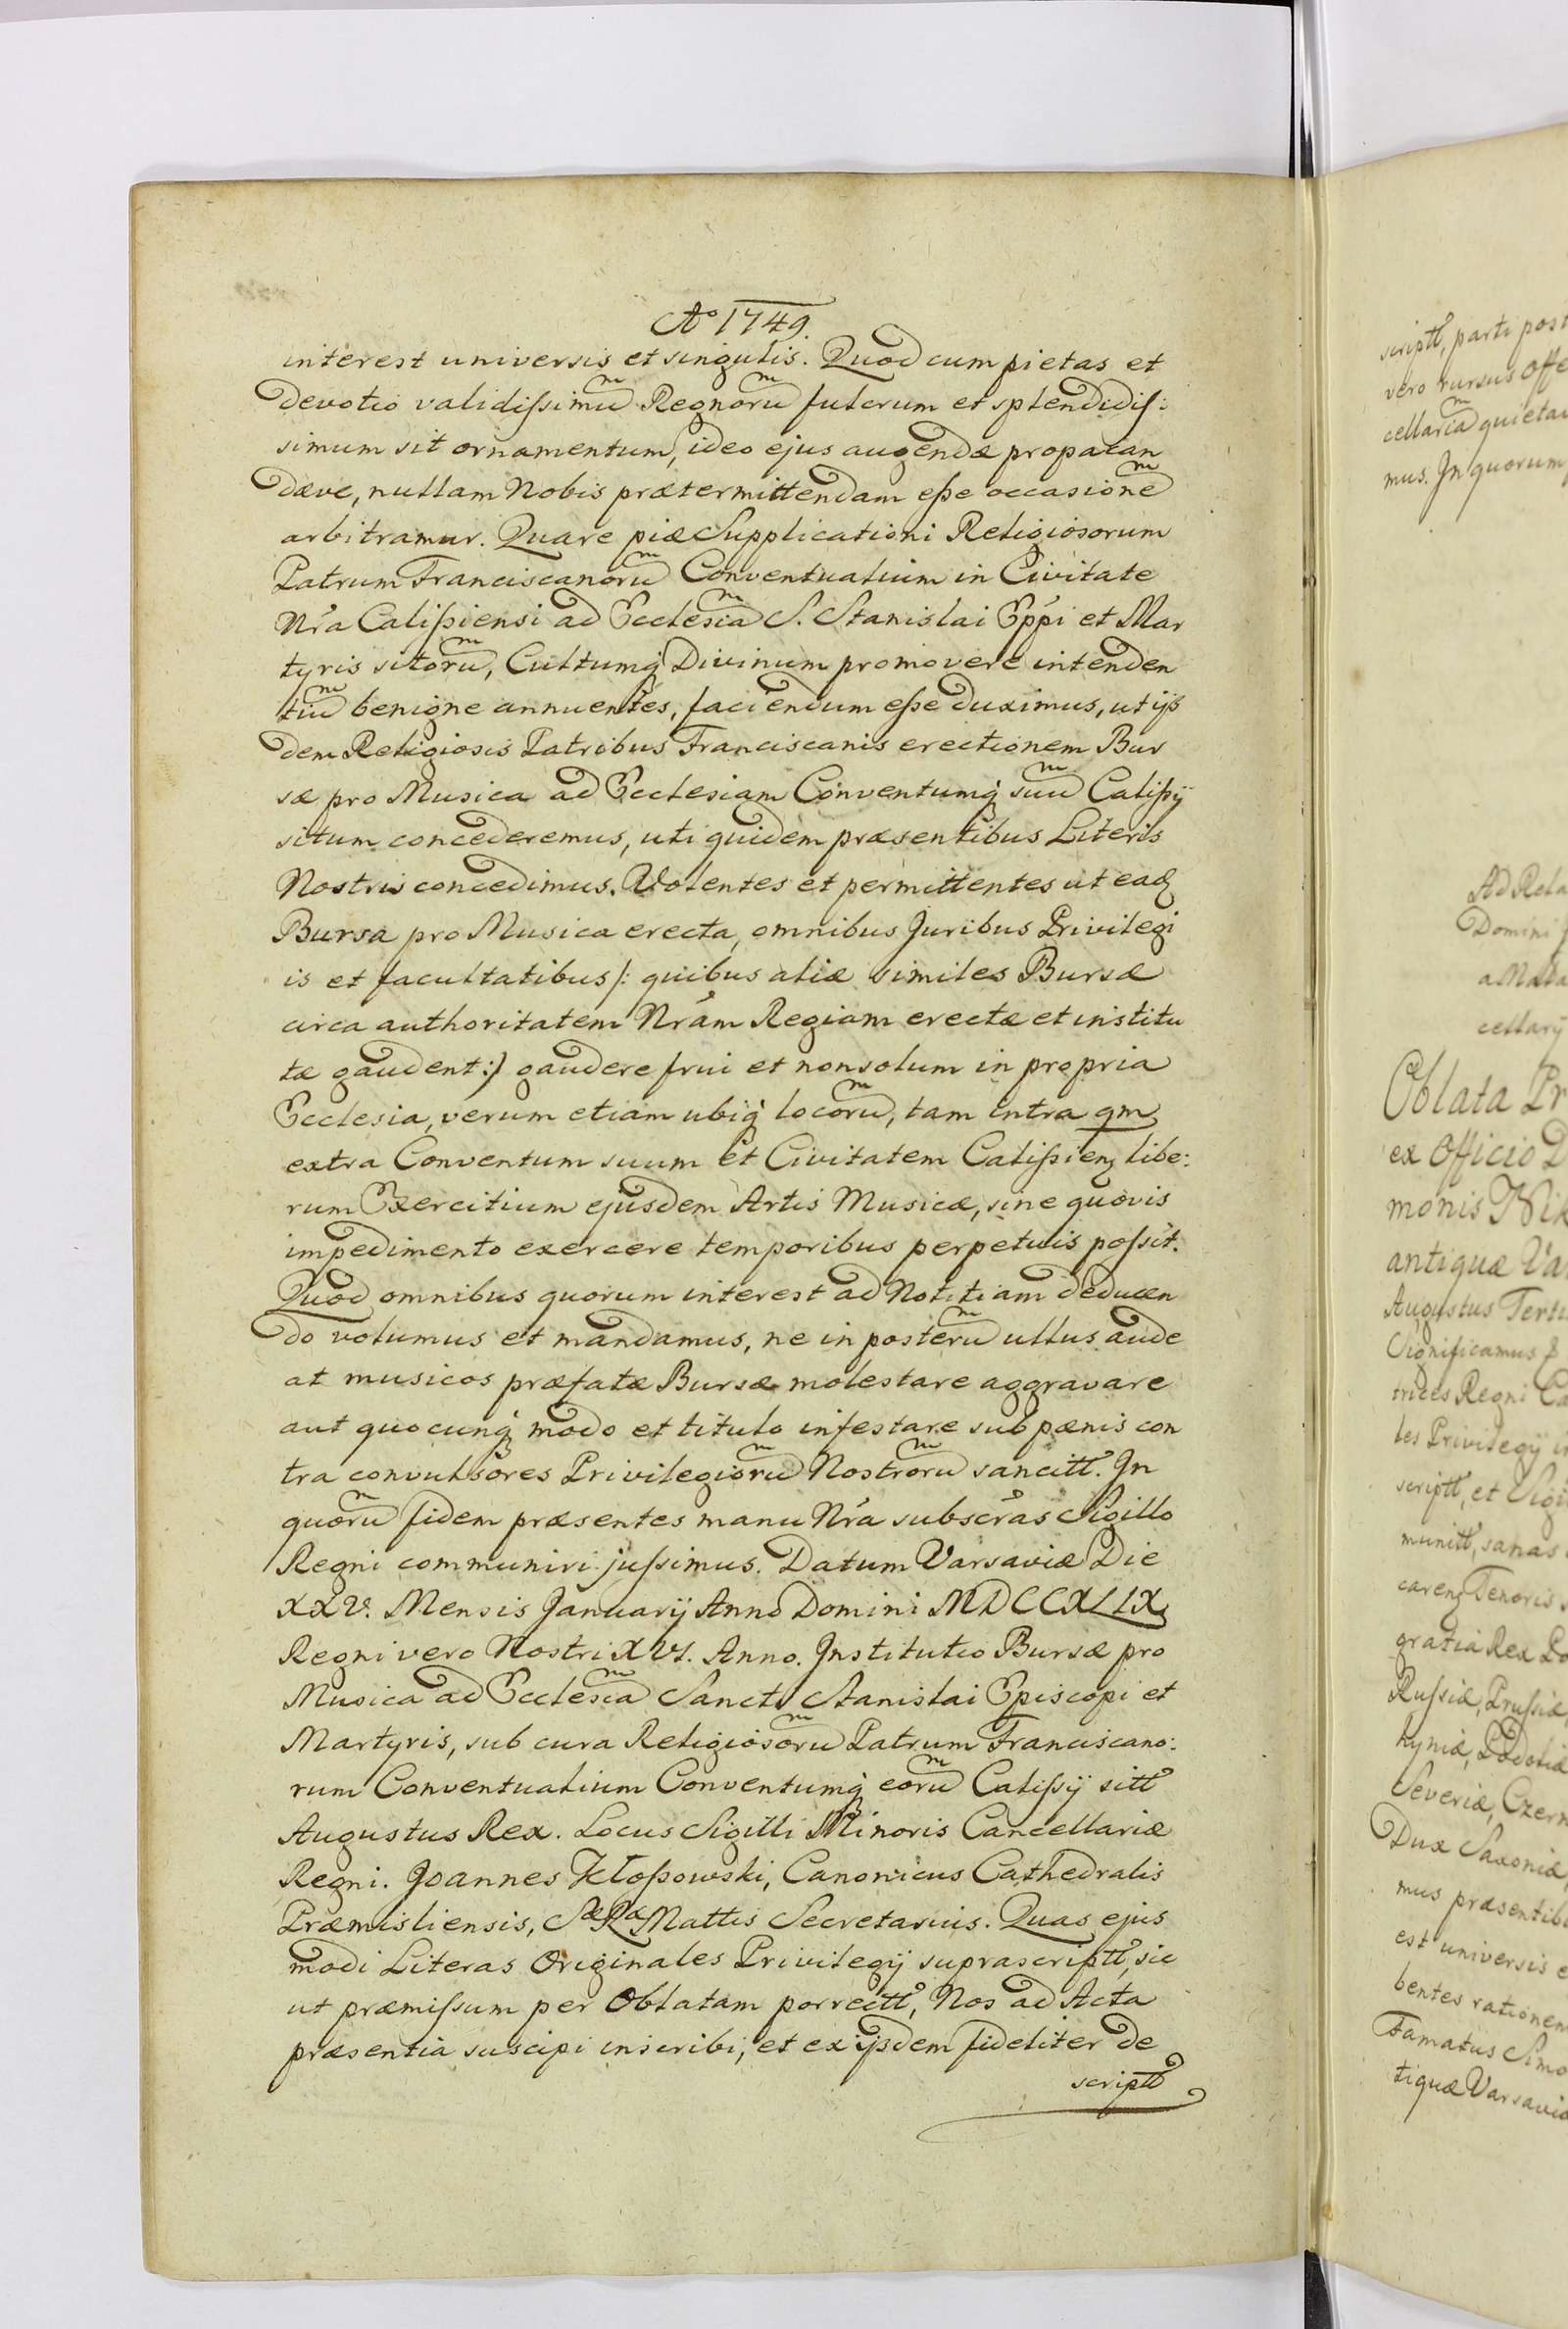 Ao 1749.
interest universis et singulis. Quod cum pietas et
devotio validissimũ Regnorũ fulcrum et splendidis:
simum sit ornamentum, ideo ejus augendæ propagan
dæve, nullam Nobis prætermittendam esse occasionẽ
arbitramur. Quare piæ Supplicationi Religiosorum
Patrum Franciscanorũ Conventualium in Civitate
Nr̃a Calissiensi ad Ecclesiã S. Stanislai Epp̃i et Mar
tyris sitorũ, Cultumq́ Divinum promovere intenden
tiũ benigne annuentes, faciendum esse duximus, ut ijs
dem Religiosis Patribus Franciscanis erectionem Bur
sæ pro Musica ad Ecclesiam Conventumq́ suũ Calissÿ
situm concederemus, uti quidem præsentibus Literis
Nostris concedimus. Volentes et permittentes ut eadʒ
Bursa pro Musica erecta, omnibus Juribus Privilegi
is et facultatibus /: quibus aliæ similes Bursæ
circa authoritatem Nrãm Regiam erectæ et institu
tæ gaudent :/ gaudere frui et non solum in propria
Ecclesia, verum etiam ubiq́ locorũ, tam intra qmʒ
extra Conventum suum et Civitatem Calissienʒ libe:
rum Exercitium ejusdem Artis Musicæ, sine quovis
impedimento exercere temporibus perpetuis possit.
Quod omnibus quorum interest ad Notitiam deducen
do volumus et mandamus, ne in posterũ ullus aude
at musicos præfatæ Bursæ molestare aggravare
aut quocunq́ modo et titulo infestare sub pænis con
tra convulsores Privilegiorũ Nostrorũ sancitt. In
quorũ fidem præsentes manu Nr̃a subscrãs Sigillo
Regni communiri jussimus. Datum Varsaviæ Die
XXV. Mensis Januarij Anno Domini MDCCXLIX
Regni vero Nostri XVI. Anno. Institutio Bursæ pro
Musica ad Ecclesiã Sancti Stanislai Episcopi et
Martyris, sub cura Religiosorũ Patrum Franciscano:
rum Conventualium Conventumq́ eorũ Calissÿ sitt
Augustus Rex. Locus Sigilli Minoris Cancellariæ
Regni. Joannes Kłossowski, Canonicus Cathedralis
Præmisliensis, Sæ Ræ Mattis Secretarius. Quas ejus
modi Literas Originales Privilegij suprascriptt, sic
ut præmissum per Oblatam porrectt, Nos ad Acta
præsentia suscipi inscribi, et ex ijsdem fideliter de
scriptt
scriptt, parti post
vero rursus offe
cellariã quietan
mus. In quorum
Ad Rela
Domini
a Mała
cellarÿ
Oblata Pr
ex Officio D
monis Nik
antiquæ Va
Augustus Terti
Significamus
trices Regni Ca
les Privilegij i
scriptt, et Sigi
munitt, sanas
carenʒ Tenoris
gratia Rex Po
Russiæ, Prussiæ,
hyniæ, Podoliæ
Severiæ, Czern
Dux Saxoniæ,
mus præsentib
est universis e
bentes rationem
Famatus Simo
tiquæ Varsavi